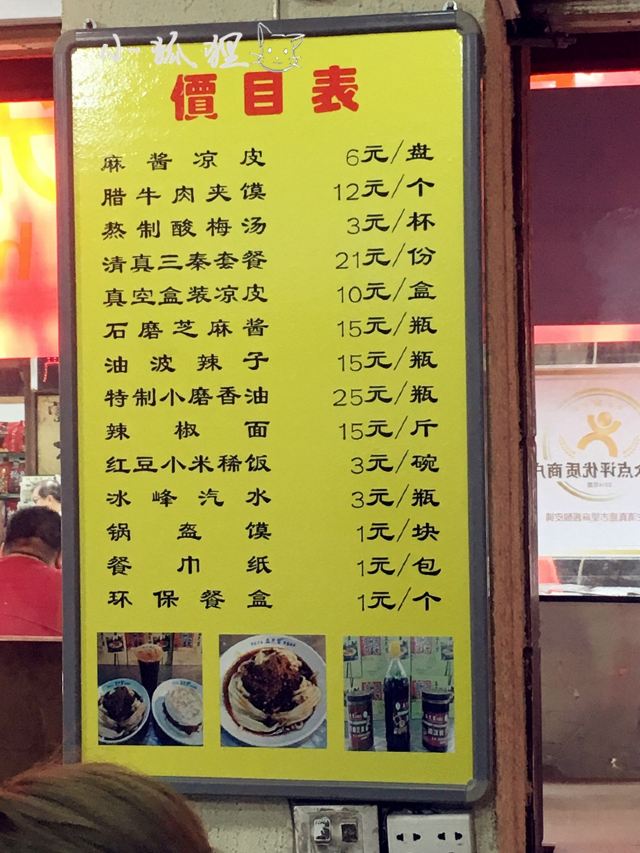 小狐狸
價目表
麻酱凉皮 6元/盘
腊牛肉夹馍 12元/个
熬制酸梅汤 3元/杯
清真三秦套餐 21元/份
真空盒装凉皮 10元/盒
石磨芝麻酱 15元/瓶
油波辣子 15元/瓶
特制小磨香油 25元/瓶
辣椒面 15元/斤
红豆小米稀饭 3元/碗
冰峰汽水 3元/瓶
锅盔馍 1元/块
餐巾纸 1元/包
环保餐盒 1元/个
点评优质商户